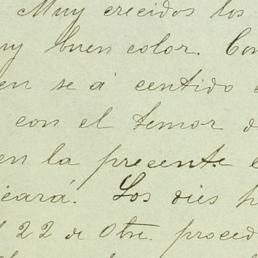 Muy crecidos los
muy buen color. Con
en se á centido
con el temor d
en la precente e
icará. Los dies p
l 22 de Otre. proced